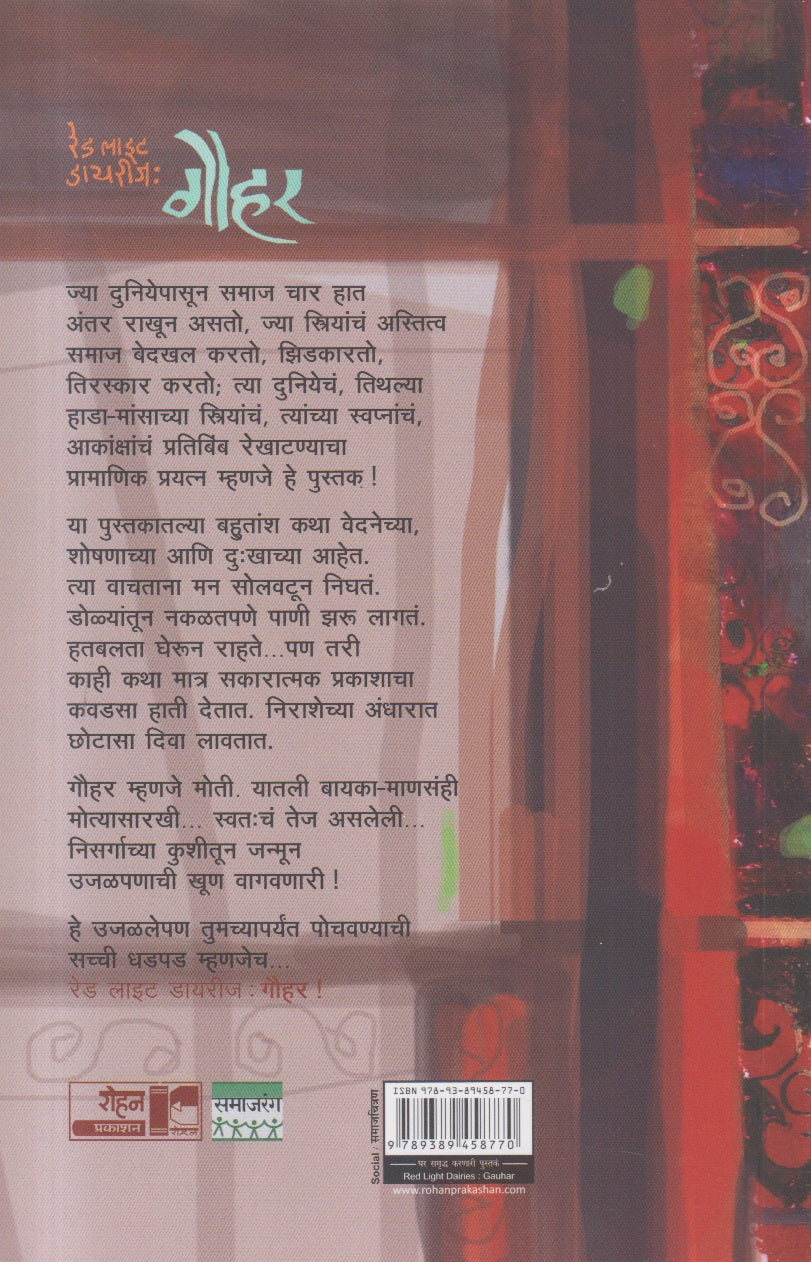 रेड लाइट
डायरीज:
गौहर
ज्या दुनियेपासून समाज चार हात
अंतर राखून असतो, ज्या स्त्रियांचं अस्तित्व
समाज बेदखल करतो, झिडकारतो,
तिरस्कार करतो; त्या दुनियेचं, तिथल्या
हाडा-मांसाच्या स्त्रियांचं, त्यांच्या स्वप्नांचं,
आकांक्षांचं प्रतिबिंब रेखाटण्याचा
प्रामाणिक प्रयत्न म्हणजे हे पुस्तक !
या पुस्तकातल्या बहुतांश कथा वेदनेच्या,
शोषणाच्या आणि दुःखाच्या आहेत.
त्या वाचताना मन सोलवटून निघतं.
डोळ्यांतून नकळतपणे पाणी झरू लागतं.
हतबलता घेरून राहते...पण तरी
काही कथा मात्र सकारात्मक प्रकाशाचा
कवडसा हाती देतात. निराशेच्या अंधारात
छोटासा दिवा लावतात.
गौहर म्हणजे मोती. यातली बायका-माणसंही
मोत्यासारखी... स्वतःचं तेज असलेली...
निसर्गाच्या कुशीतून जन्मून
उजळपणाची खूण वागवणारी !
हे उजळलेपण तुमच्यापर्यंत पोचवण्याची
सच्ची धडपड म्हणजेच...
रेड लाइट डायरीज : गौहर !
रोहन
प्रकाशन
समाजरंग
Social / समाजचित्रण
ISBN 978-93-89458-77-0
9 789389 458770
घर समृद्ध करणारी पुस्तकं
Red Light Dairies : Gauhar
www.rohanprakashan.com